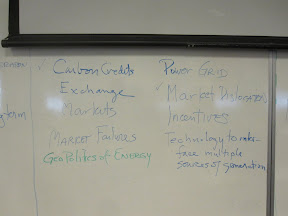 ✓ Carbon Credits
Exchange
Markets
Market Failures
GeoPolitics of Energy
Power Grid
✓ Market Distortion
Incentives
Technology to
face multiple
sources of generation